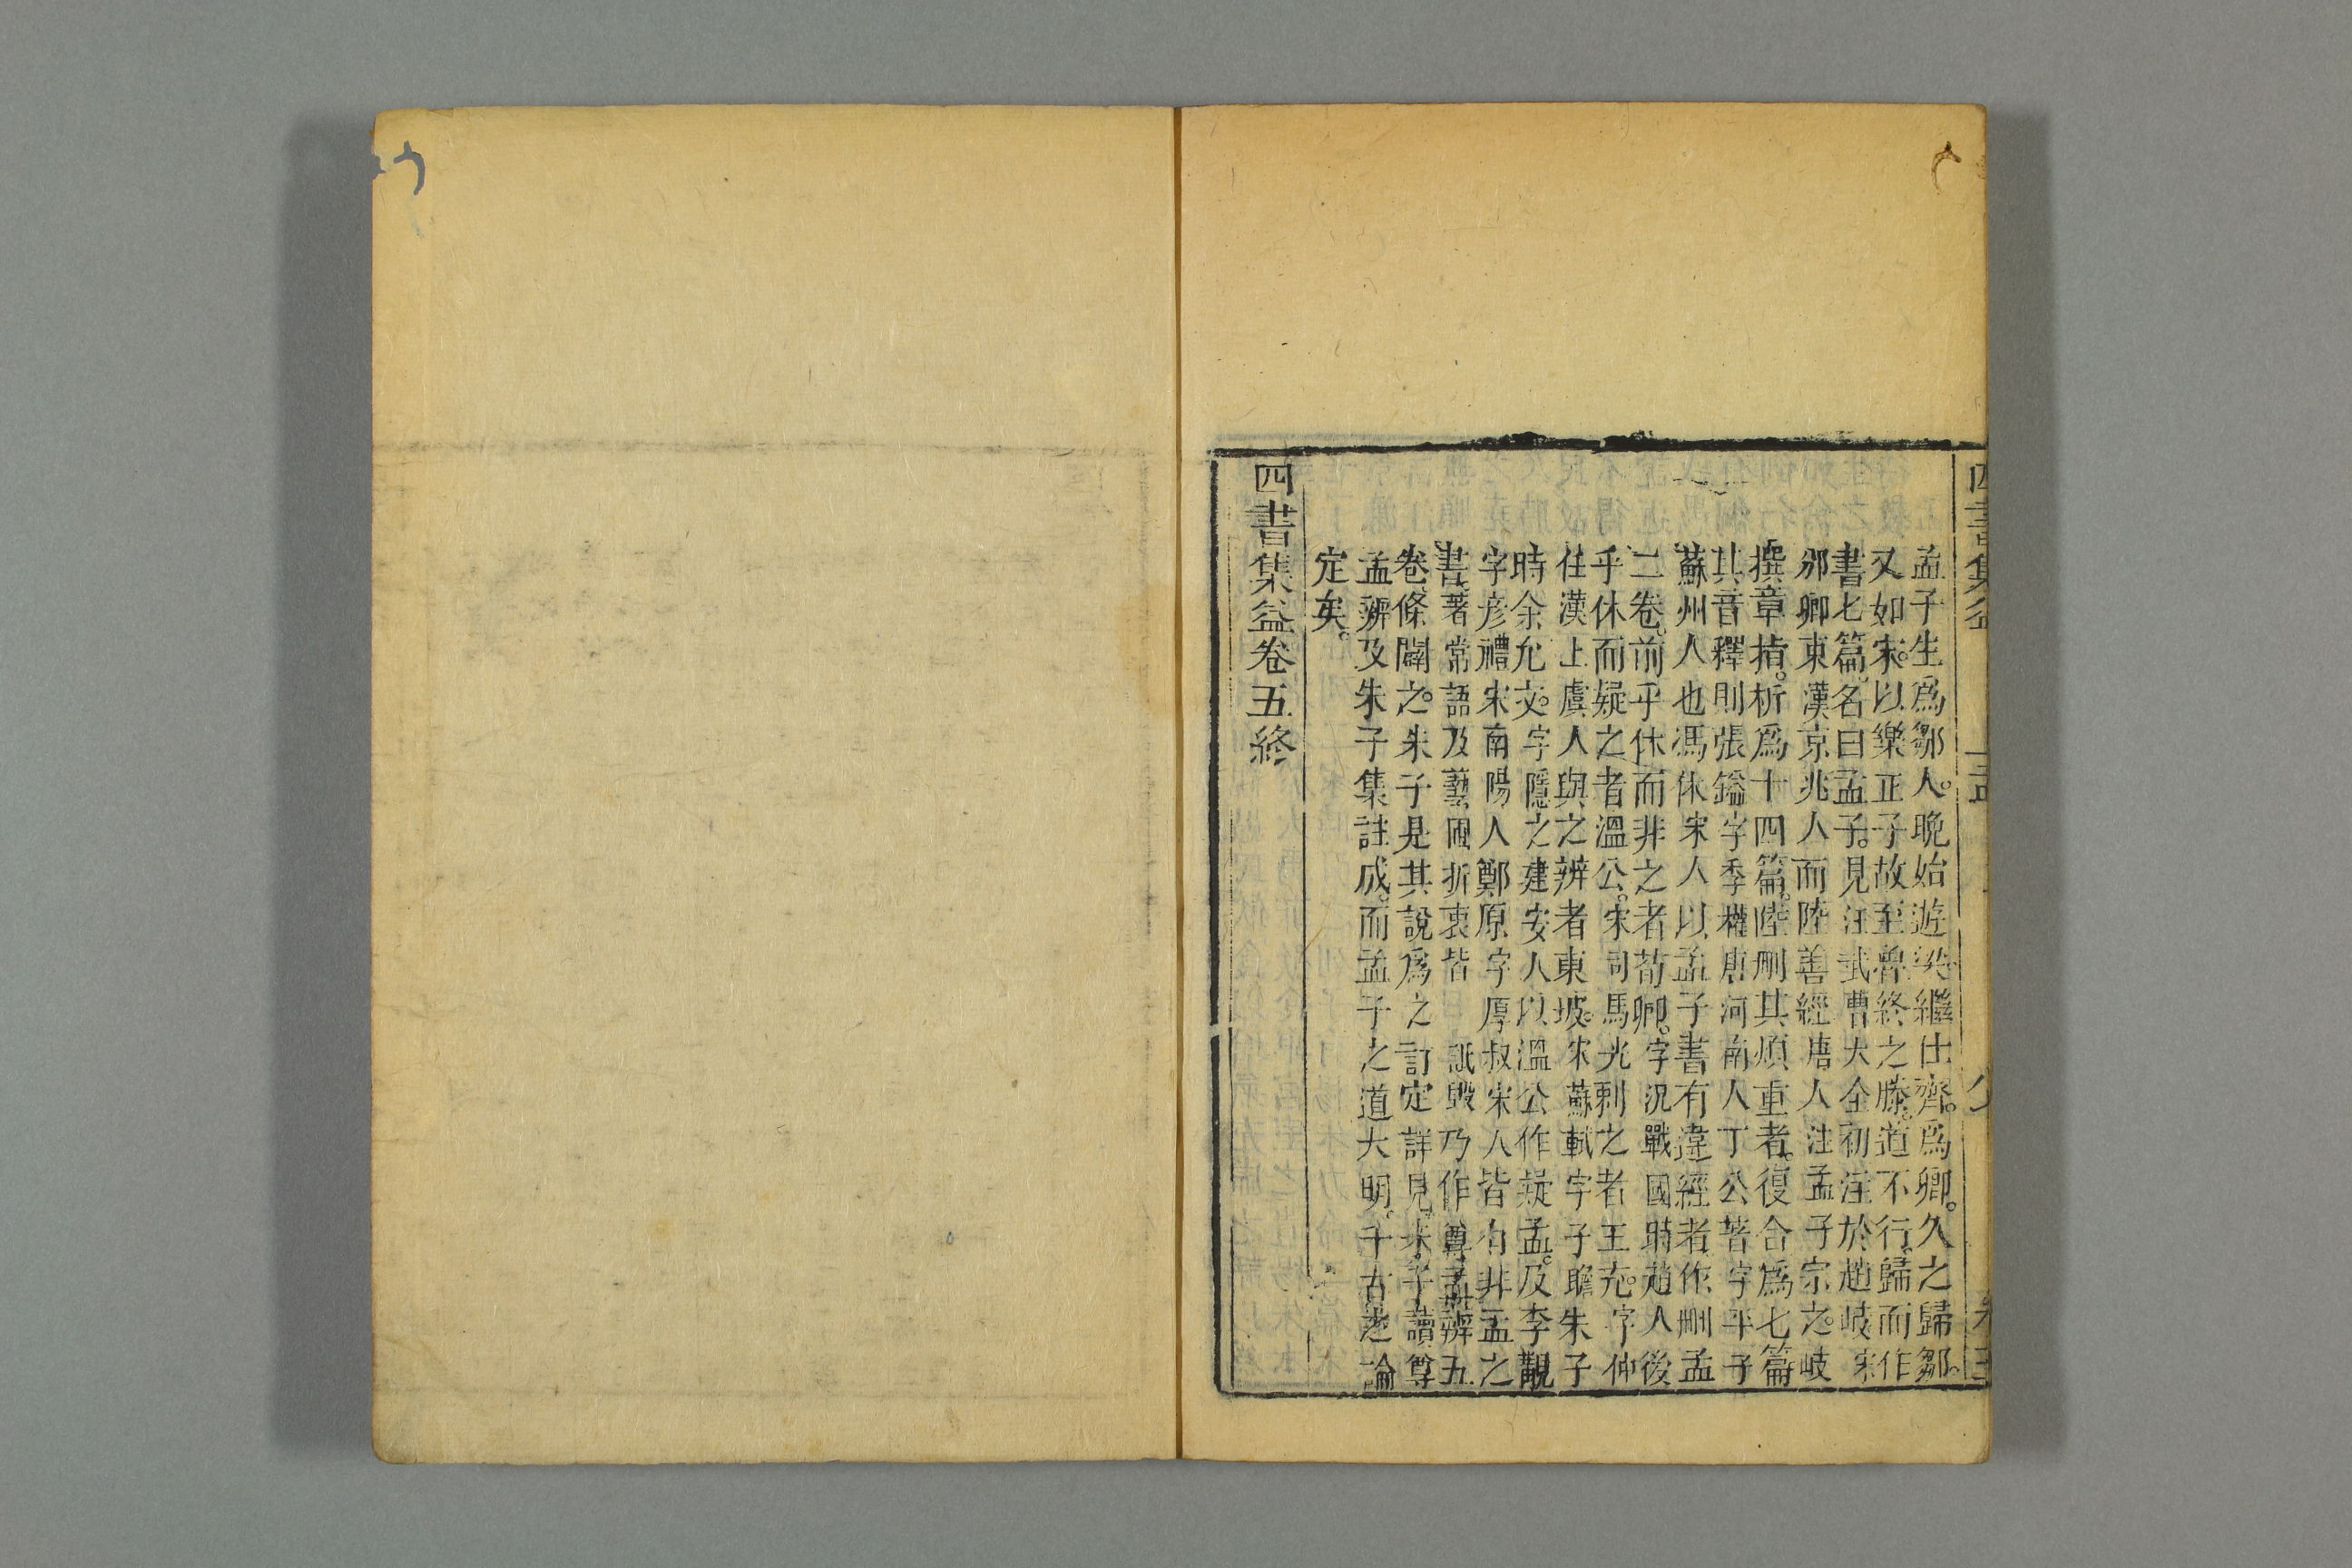 孟子生爲鄒人。晚始遊梁。繼仕齊。爲卿。久之歸鄒。
又如宋。以樂正子故至魯。終之滕。道不行。歸而作
書七篇。名曰孟子。見汪武曹大全初注於趙岐
邠卿東漢京兆人而陸善經唐人注孟子宗之。岐
撰章指。析爲十四篇。陸刪其煩重者。復合爲七篇。
其音釋則張鎰字季權唐河南人丁公著字平子
蘇州人也馮休宋人以孟子書有違經者作刪孟
二卷。前乎休而非之者荀卿。字況戰國時趙人後
乎休而疑之者溫公。宋司馬光刺之者王充。字仲
任漢上虞人與之辨者東坡。宋蘇軾字子瞻朱子
時余允文。字隱之建安人以溫公作疑孟。及李覯
字彥禮宋南陽人鄭原字厚叔宋人皆有非孟之
書。著常語及藝圃折衷皆詆毀乃作尊孟辨五
卷。條闢之。朱子是其說爲之訂定詳見朱子讀尊
孟辨及朱子集註成。而孟子之道大明。千古之論
定矣。
四書集益卷五終
四書集益